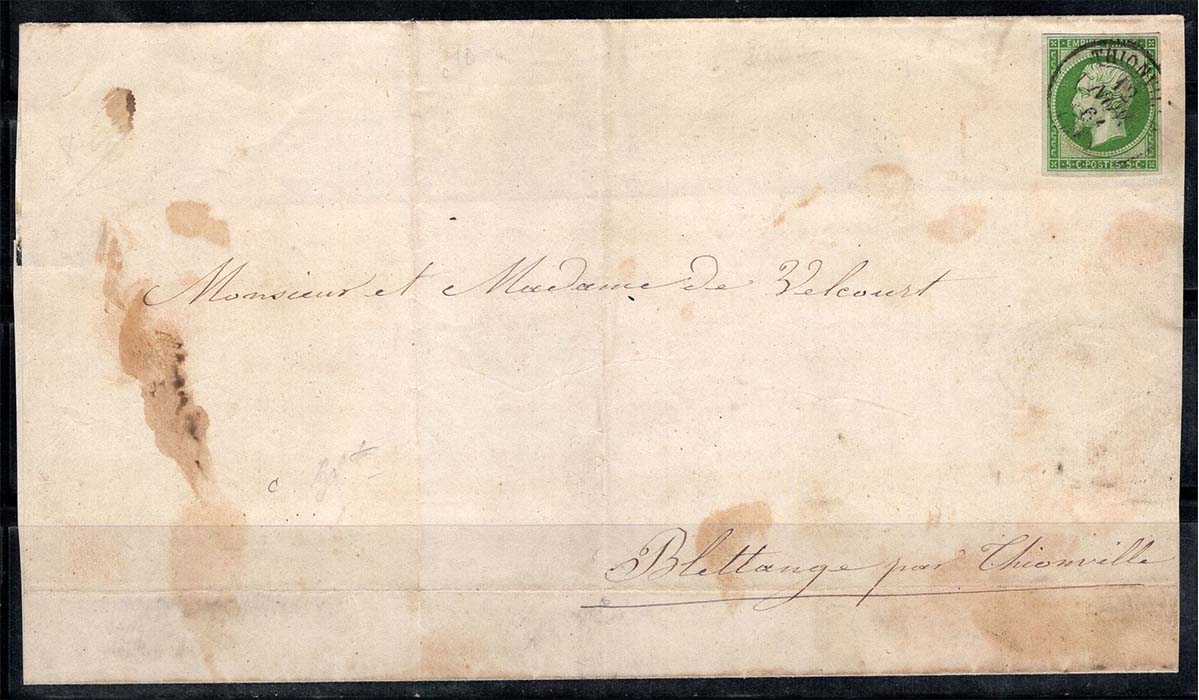 EMPIRE FRANC
THIONVI
12
NOV.
61
5·C·POSTES·5·C·
Monsieur et Madame de Velcourt
Blettange par Thionville